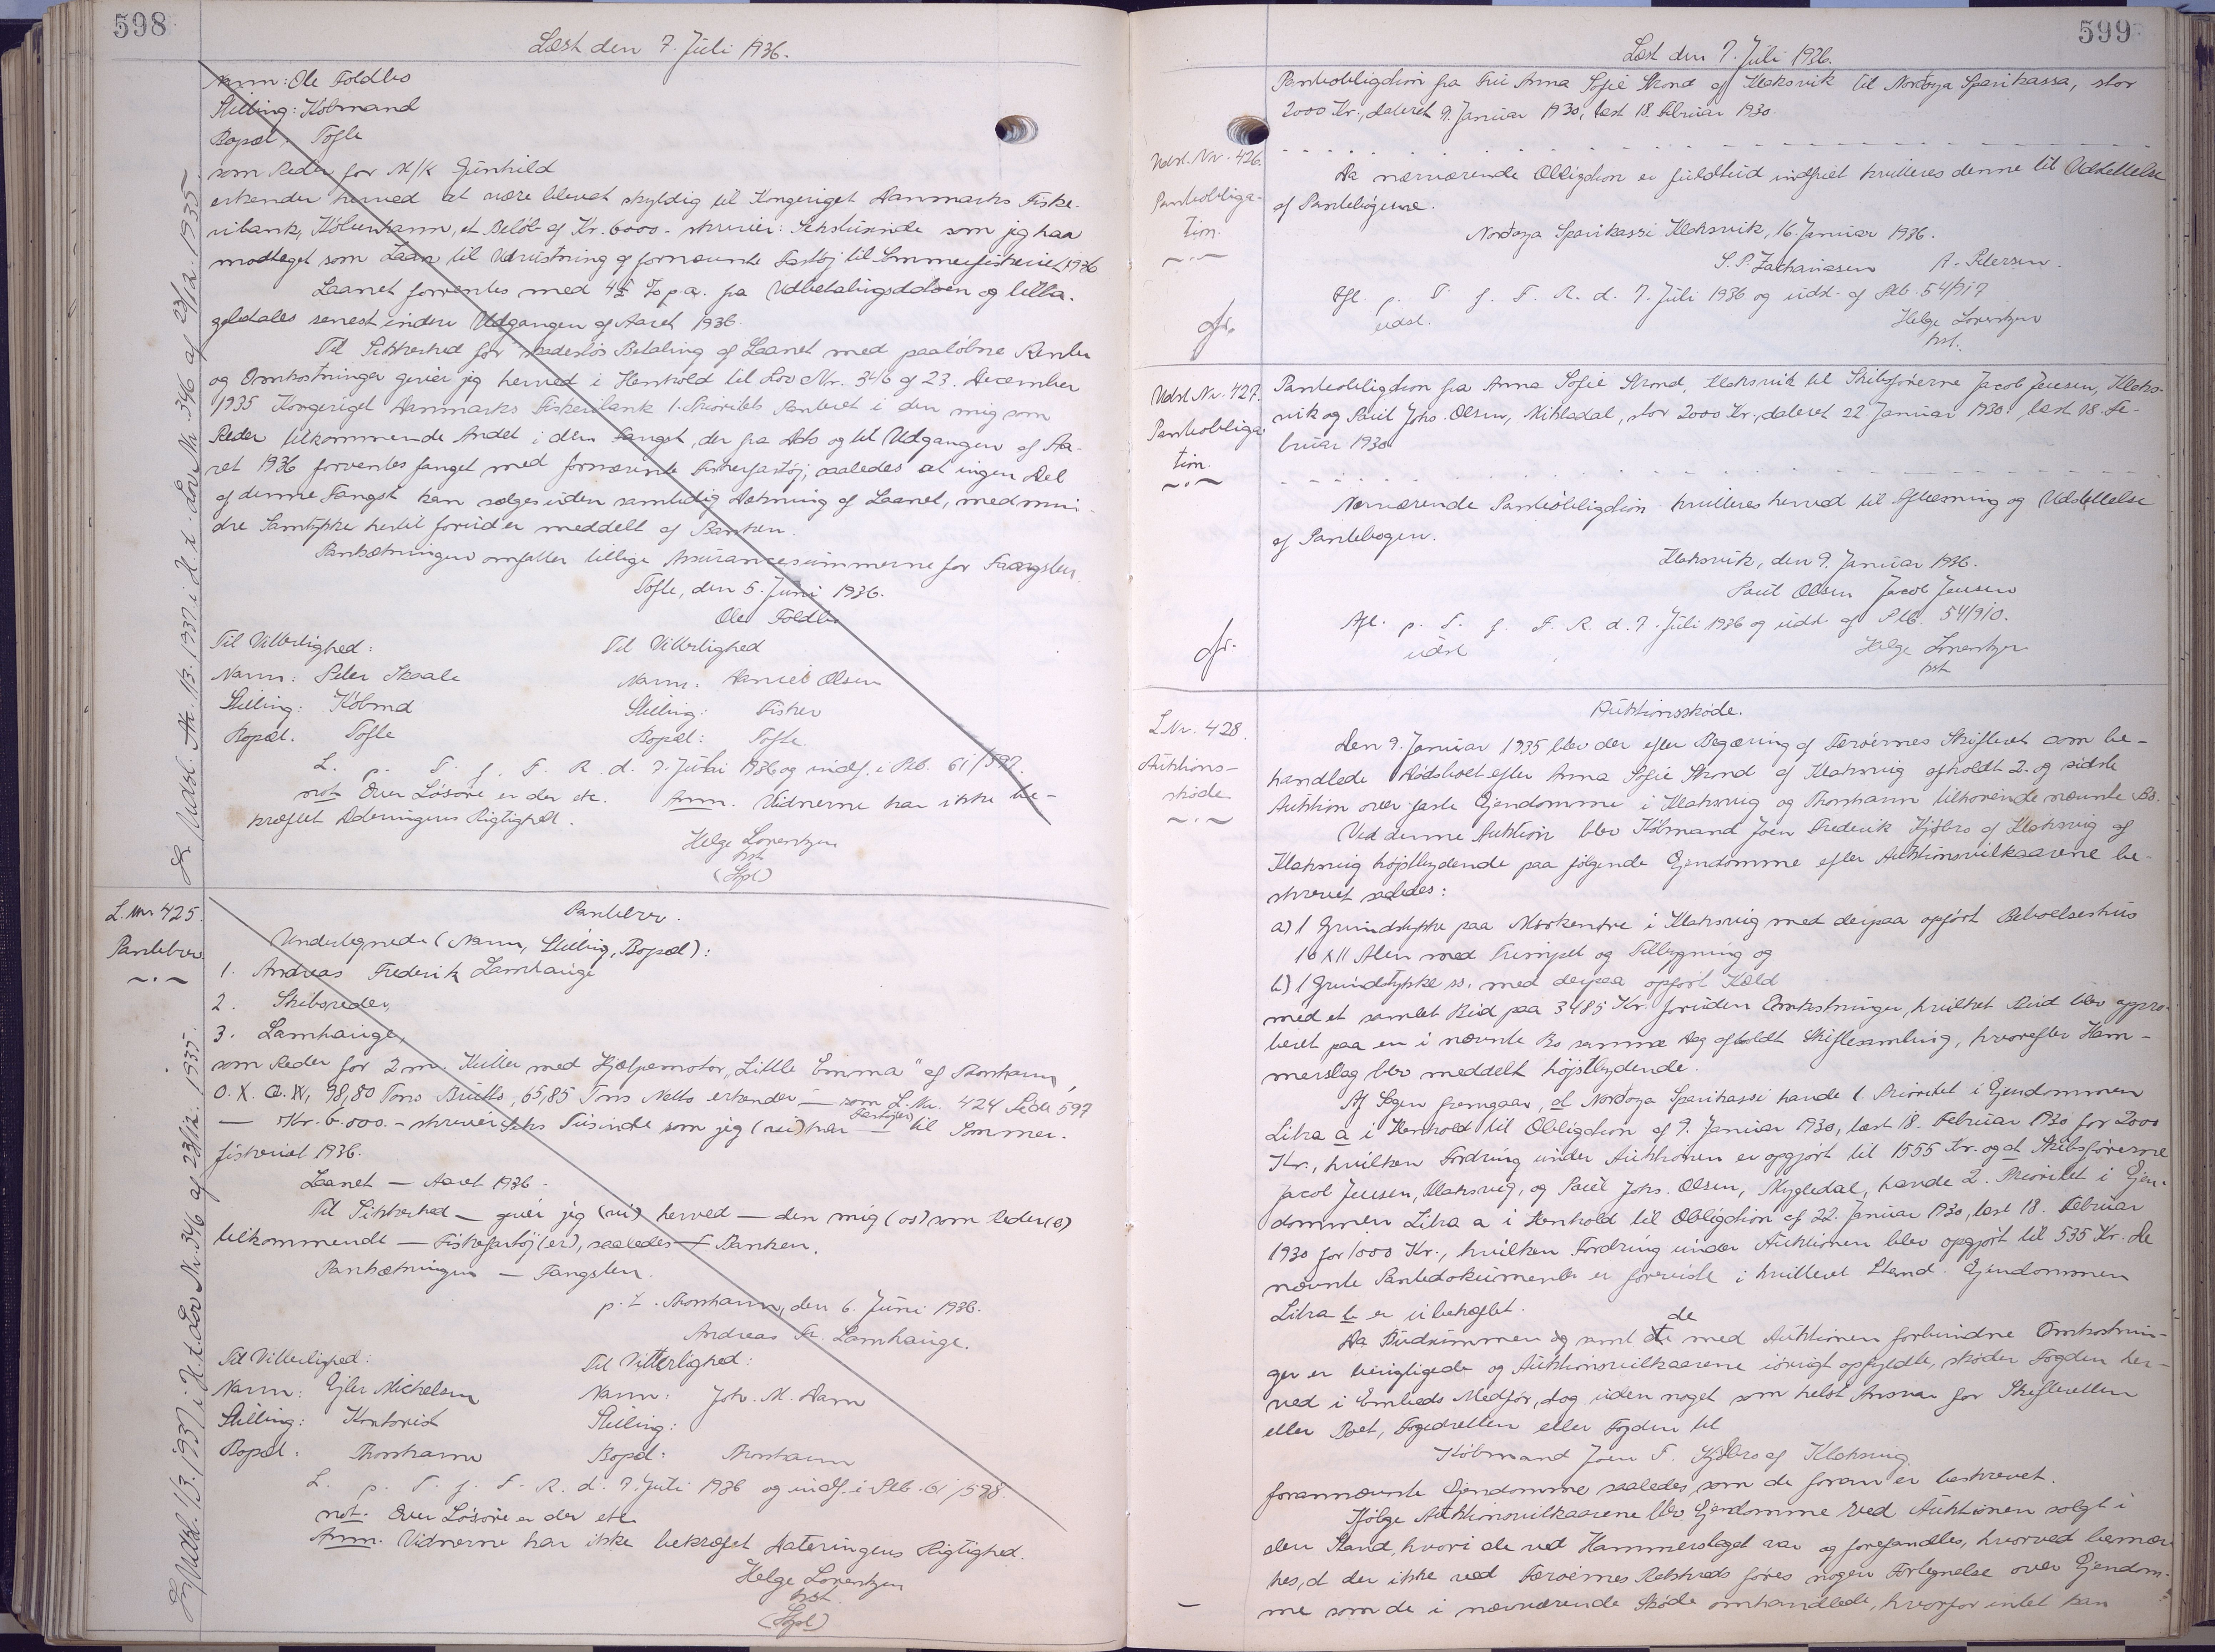 598
Læst den 7. Juli 1936.
Navn: Ole Foldbo
Stilling: Købmand
Bopæl: Tofte
som Reder for M/K Gunhild
erkender herved at være blevet skyldig til Kongeriget Danmarks Fiske-
ribank, København, et Beløb af Kr. 6000 - skriver: Sekstusinde som jeg har
modtaget som Laan til Udrustning af fornævnte Fartøj til Sommerfiskeriet 1936
Laanet forrentes med 4½ % p.a. fra Udbetalingsdatoen og tilba-
gebetales senest inden Udgangen af Aaret 1936.
Til Sikkerhed for skadesløs Betaling af Laanet med paaløbne Renter
og Omkostninger giver jeg herved i Henhold til Lov Nr. 346 af 23. December
1935 Kongeriget Danmarks Fiskeribank 1. Prioritets Panteret i den mig som
Reder tilkommende Andel i den Fangst, der fra Dato og til Udgangen af Aa-
ret 1936 forventes fanget med fornævnte Fiskerfartøj, saaledes at ingen Del
af denne Fangst kan sælges uden samtidig Dækning af Laanet, med min-
dre Samtykke hertil forud er meddelt af Banken.
Pantsætningen omfatter tillige Assurancesummerne for Faangsten.
Tofte, den 5. Juni 1936.
Ole Foldbo
Til Vitterlighed: Til Vitterlighed
Navn: Peter Skaale Navn: Daniel Olsen
Stilling: Købmd Stilling: Fisker
Bopæl. Tofte Bopæl: Tofte
L. p. T. f. F. R. d. 7. Juli 1936 og indf. i Pb. 61/597.
not. Over Løsøre er der etc. Anm. Vidnerne har ikke be-
kræftet Dateringens Rigtighed.
Helge Lorentzen
kst.
(Stpl)
Udsl. 1/3. 1937 i H. t. Lov Nr. 346 af 23/12. 1935
L. Nr 425.
Pantebrev
~.~
Pantebrev.
Undertegnede (Navn, Stilling, Bopæl):
1. Andreas Frederik Lamhauge
2. Skibsreder,
3. Lamhauge,
som Reder for 2 m. Kutter med Hjælpemotor "Little Emma" af Thorshavn,
O. X. Q. W, 98,80 Tons Brutto, 65,85 Tons Netto erkender — som L. Nr. 424 Side 597
— Kr. 6.000.- skriver Seks Tusinde som jeg (vi) har — Fartøj(er) til Sommer-
fiskeriet 1936.
Laanet — Aaret 1936 -
Til Sikkerhed — giver jeg (vi) herved — den mig (os) som Reder(e)
tilkommende — Fiskefartøj(er), saaledes — Banken.
Pantsætningen — Fangsten.
p.t. Thorshavn, den 6. Juni 1936.
Andreas Fr. Lamhauge.
Til Vitterlighed: Til Vitterlighed:
Navn: Ejler Michelsen Navn: Joh. M. Dam
Stilling: Kontorist Stilling:
Bopæl: Thorshavn Bopæl: Thorshavn
L. p. T. f. F. R. d. 7. Juli 1936 og indf. i Pb. 61/598.
not. Over Løsøre er der etc.
Anm. Vidnerne har ikke bekræftet Dateringens Rigtighed.
Helge Lorentzen
kst.
(Stpl)
Udsl. 1/3. 1937 i H. t. Lov Nr. 346 af 23/12. 1935.
599
Læst den 7. Juli 1936.
Panteobligation fra Fru Anna Sofie Strond af Klaksvik til Norðoya Sparikassa, stor
2000 Kr., dateret 9. Januar 1930, læst 18. Februar 1930.
Udsl. Nr. 426.
Panteobliga-
tion.
~.~
Da nærværende Obligation er fuldtud indfriet kvitteres denne til Udslettelse
af Pantebøgerne.
Norðoya Sparikassi Klaksvik, 16. Januar 1936.
S. P. Zachariasen A. Petersen.
Afl. p. T. f. F. R. d. 7. Juli 1936 og udsl. af Pb. 54/917
udsl.
Helge Lorentzen
kst.
Udsl. Nr. 427.
Panteobliga-
tion.
~.~
Panteobligation fra Anna Sofie Strond, Klaksvik til Skibsførerne Jacob Jensen, Klaks-
vik og Poul Johs. Olsen, Mikladal, stor 2000 Kr., dateret 22. Januar 1930. læst 18. Fe-
bruar 1930.
Nærværende Panteobligation kvitteres herved til Aflæsning og Udslettelse
af Pantebogen.
Klaksvik, den 9. Januar 1936.
Poul Olsen Jacob Jensen
Afl. p. T. f. F. R. d. 7. Juli 1936 og udsl. af Pb. 54/910.
udsl
Helge Lorentzen
kst
L. Nr. 428.
Auktions-
skøde
~.~
Auktionsskøde.
Den 9. Januar 1935 blev der efter Begæring af Færøernes Skifteret som be-
handlede Dødsboet efter Anna Sofie Strond af Klaksvig afholdt 2. og sidste
Auktion over faste Ejendomme i Klaksvig og Thorshavn tilhørende nævnte Bo.
Ved denne Auktion blev Købmand Joen Frederik Kjølbro af Klaksvig af
Klaksvig højstbydende paa følgende Ejendomme efter Auktionsvilkaarene be-
skrevet saaledes:
a) 1 Grundstykke paa Mørkendre i Klaksvig med derpaa opført Beboelseshus
16 x 11 Alen med Trempel og Tilbygning og
b) 1 Grundstykke ss. med derpaa opført Kæld
med et samlet Bud paa 3485 Kr. foruden Omkostninger, hvilket Bud blev appro-
beret paa en i nævnte Bo samme Dag afholdt Skiftesamling, hvorefter Ham-
merslag blev meddelt højstbydende.
Af Sagen fremgaar, at Norðoya Sparikassi havde 1. Prioritet i Ejendommen
Litra a i Henhold til Obligation af 9. Januar 1930, læst 18. Februar 1930 for 2000
Kr., hvilken Fordring under Auktionen er opgjort til 1555 Kr. og at Skibsførerne
Jacob Jensen, Klaksvig, og Poul Johs. Olsen, Mygledal, havde 2. Prioritet i Ejen-
dommen Litra a i Henhold til Obligation af 22. Januar 1930, læst 18. Februar
1930 for 1000 Kr., hvilken Fordring under Auktionen blev opgjort til 535 Kr. De
nævnte Pantedokumenter er foreviste i kvitteret Stand. Ejendommen
Litra b er ubehæftet.
Da Budsummen og samt de med Auktionen forbundne Omkostnin-
ger er berigtigede og Auktionsvilkaarene iøvrigt opfyldte, skøder Fogden her-
ved i Embeds Medfør, dog uden noget som helst Ansvar for Skifteretten
eller Boet, Fogedretten eller Fogden til
Købmand Joen F. Kjølbro af Klaksvig.
forannævnte Ejendomme saaledes, som de foran er beskrevet.
Ifølge Auktionsvilkaarene blev Ejendomme ved Auktionen solgt i
den Stand, hvori de ved Hammerslaget var og forefandtes, hvorved bemær-
kes, at der ikke ved Færøernes Retskreds føres nogen Fortegnelse over Ejendom-
me som de i nærværende Skøde omhandlede, hvorfor intet kan